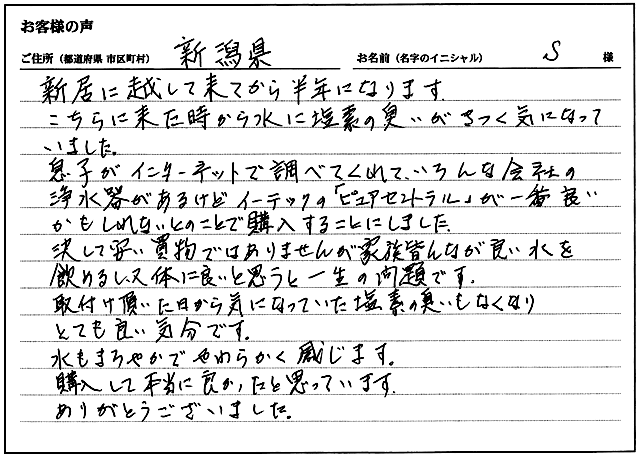 お客様の声
ご住所（都道府県 市区町村） 新潟県 お名前（名字のイニシャル） S 様
新居に越して来てから半年になります。
こちらに来た時から水に塩素の臭いがきつく気になって
いました。
息子がインターネットで調べてくれて、いろんな会社の
浄水器があるけどイーテックの「ピュアセントラル」が一番良い
かもしれないとのことで購入することにしました。
決して安い買物ではありませんが家族皆んなが良い水を
飲めるし又体に良いと思うと一生の問題です。
取付け頂いた日から気になっていた塩素の臭いもなくなり
とても良い気分です。
水もまろやかでやわらかく感じます。
購入して本当に良かったと思っています。
ありがとうございました。